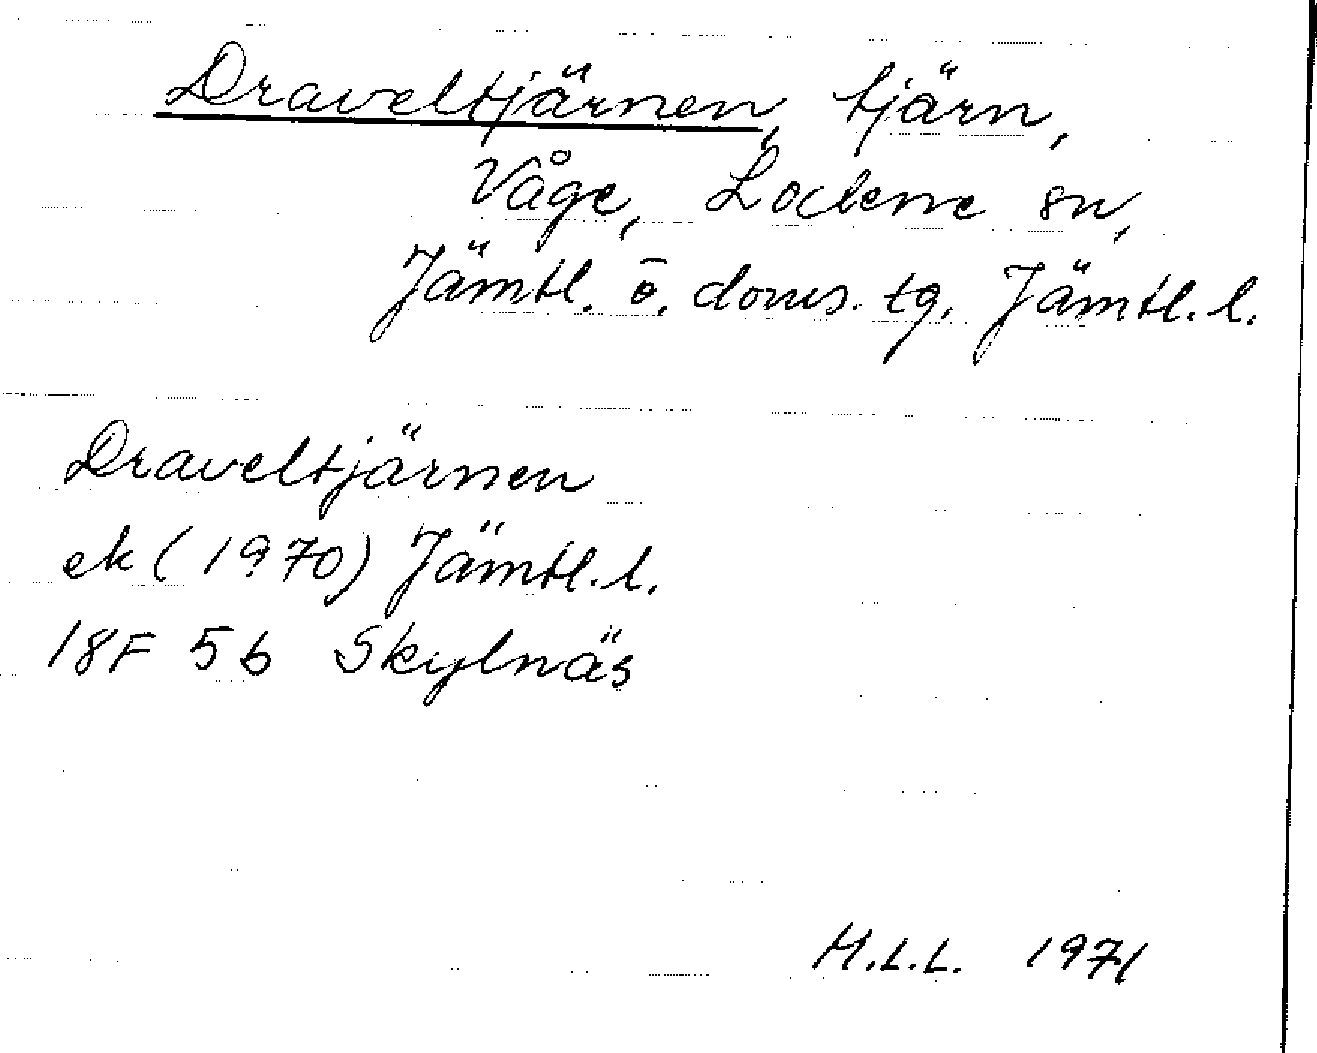 Draveltjärnen, tjärn,
Våge, Lockne sn,
Jämtl. ö. doms. tg. Jämtl. l.
Draveltjärnen
ek (1970) Jämtl. l.
18F 5b Skylnäs
H.L.L. 1971